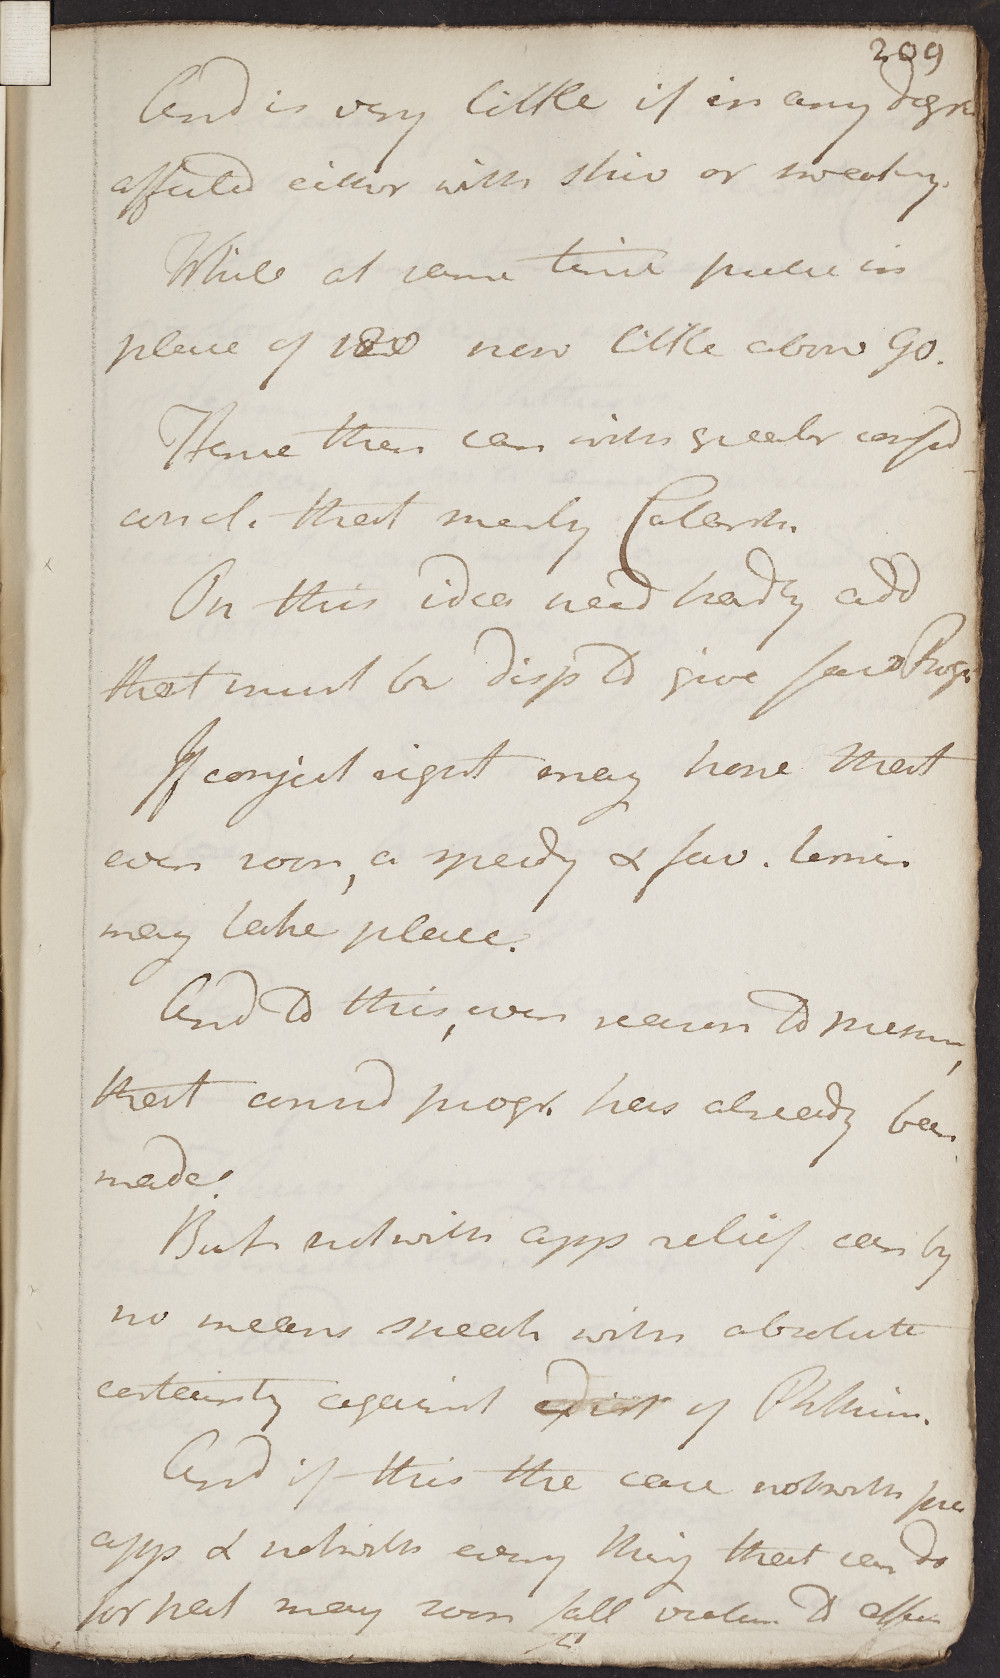 209
And is very little if in any degre
affected either with shiv or sweating.
While at same time pulse in
place of 120 now little above 90.
Hence then can with greater confid
concl. that merely Catarrh.
On this idea need hardly add
that must be disp to give fav Progn
If conject right may hope that
even soon, a speedy & fav. termin
may take place.
And to this, even reason to presum,
that consid progr. has already been
made.
But notwith app relief can by
no means speak with absolute
certainty against exist of Phthisis.
And if this the case notwith pres
app & notwith every thing that can do
for pat may soon fall victim to affec